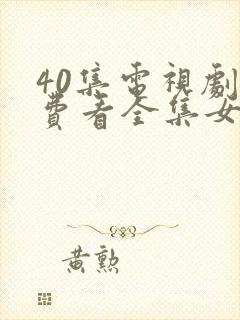 40集電視劇
費看全集女
黃勲